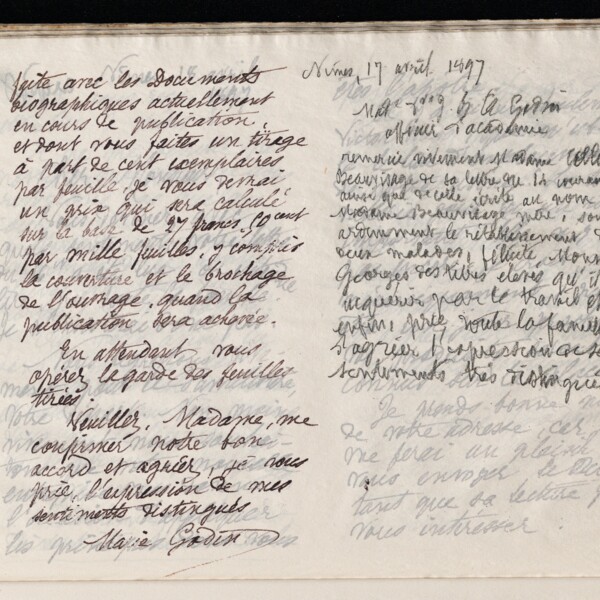 faite avec les Documents
biographiques actuellement
en cours de publication,
et dont vous faites un tirage
à part de cent exemplaires
par feuille, je vous demai,
un prix qui sera calculé
sur la base de 27 francs, 50 cent
par mille feuilles, y compris
la couverture et le brochage
de l'ouvrage, quand la
publication sera achevée.
En attendant vous
opérez la garde des feuilles
tirées.
Veuillez, Madame, me
confirmer notre bon
accord et agréer, je vous
prie, l'expression de mes
sentiments distingués
Marie Godin
Nîmes, 17 avril 1897
Godin
officier d'académie
remercie vivement Madame
Beauvisage de sa lettre du 14 courant
ainsi que de celle écrite au nom
Madame Beauvisage mère, sou
ardemment le rétablissement d
deux malades, félicite Mons
Georges des titres élevés qu'il
acquérir par le travail et
enfin, prie toute la famill
d'agréer l'expression de se
sentiments très distingués
Je prends bonne n
de votre adresse, car
me ferai un plaisir
vous envoyer le
tant que sa lecture
vous intéresser.